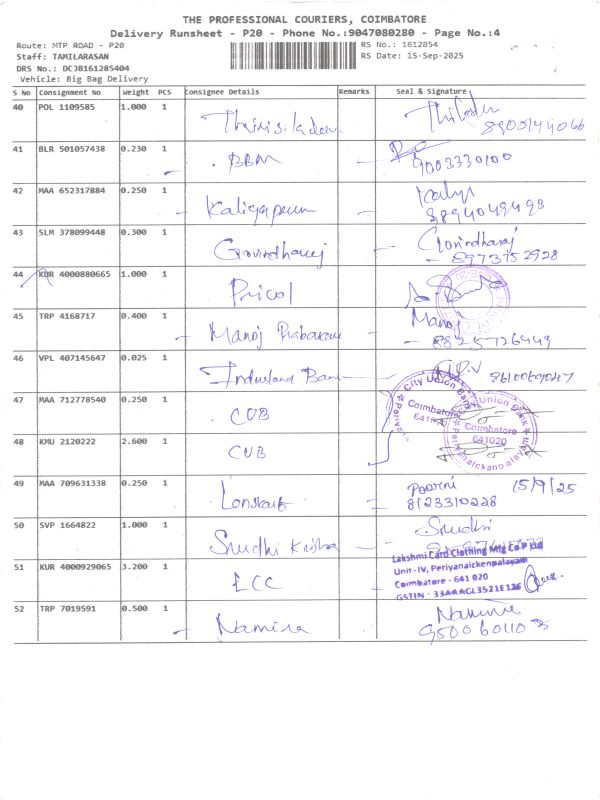 THE PROFESSIONAL COURIERS, COIMBATORE
Delivery Runsheet - P20 - Phone No.:9047080280 - Page No.:4
Route: MTP ROAD - P20
RS No.: 1612854
Staff: TAMILARASAN
RS Date: 15-Sep-2025
DRS No.: DCJB161285404
Vehicle: Big Bag Delivery
S No Consignment No Weight PCS Consignee Details Remarks Seal & Signature
40 POL 1109585 1.000 1
41 BLR 501057438 0.230 1 BBM 9003330100
42 MAA 652317884 0.250 1 Kaliyapurum
43 SLM 378099448 0.300 1 Govindharaj Govindharaj
8973752928
44 KUR 4000880665 1.000 1 Pricol
45 TRP 4168717 0.400 1 Manoj Prabakaran Manoj
8825726449
46 VPL 407145647 0.025 1 Indusland Bank
47 MAA 712778540 0.250 1 CUB City Union Bank Coimbatore 641020
48 KMU 2120222 2.600 1 CUB Union Bank Coimbatore 641020 Periyanaickenpalayam
49 MAA 709631338 0.250 1 Poorni 15/9/25
8123310228
50 SVP 1664822 1.000 1 Srudhi Krishna Srudhi
51 KUR 4000929065 3.200 1 LCC Lakshmi Card Clothing Mfg Co P Ltd
Unit-IV, Periyanaickenpalayam
Coimbatore - 641 020
GSTIN : 33AAACL3521E1Z6
52 TRP 7019591 0.500 1 Namira